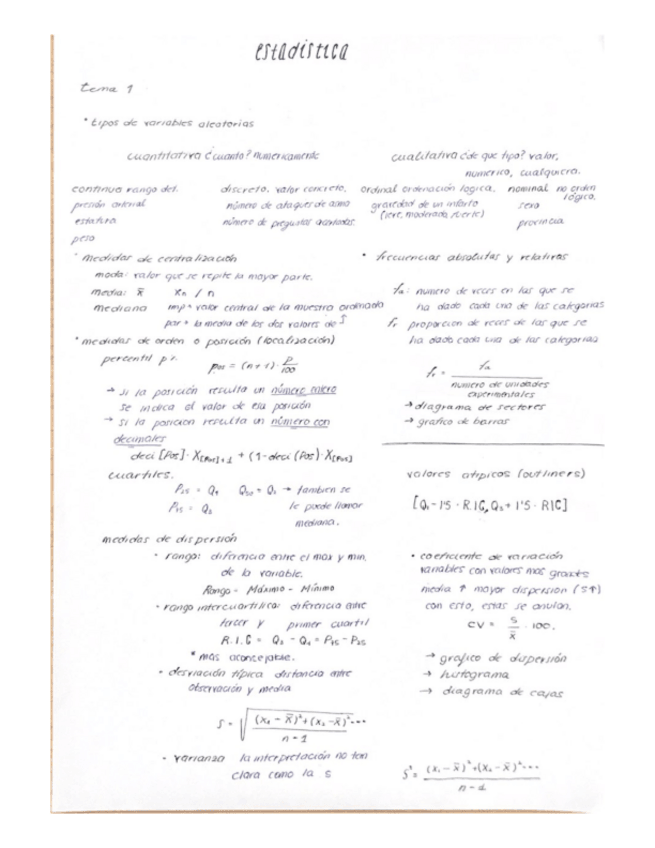 estadística
tema 1
• tipos de variables aleatorias
cuantitativa ¿cuanto? numericamente
continua rango del.
presión arterial
estatura
peso
discreta. valor concreto.
número de ataques de asma
número de preguntas acertadas.
cualitativa ¿de que tipo? valor,
numerico, cualquiera.
ordinal ordenación logica.
gravedad de un infarto
(leve, moderada, fuerte)
nominal no orden
lógico.
sexo
provincia
• medidas de centralización
moda: valor que se repite la mayor parte.
media: x̄ xn / n
mediana imp → valor central de la muestra ordenada
par → la media de los dos valores de
• medidas de orden o posición (localización)
percentil p %.
pos = (n+1) · p/100
→ si la posición resulta un número entero
se indica el valor de esa posición
→ si la posicion resulta un número con
decimales
deci [Pos] · X[Pos]+1 + (1-deci (Pos) · X[Pos]
cuartiles.
P25 = Q1 Q50 = Q2 → tambien se
P75 = Q3 le puede llamar
mediana.
medidas de dispersión
• rango: diferencia entre el max y min.
de la variable.
Rango = Máximo - Mínimo
• rango intercuartílico: diferencia entre
tercer y primer cuartil
R.I.C = Q3 - Q1 = P75 - P25
* más aconsejable.
• desviación típica distancia entre
observación y media
S = √((x1 - x̄)² + (x2 - x̄)² ... / n - 1)
• varianza la interpretación no tan
clara como la s
• frecuencias absolutas y relativas
fa: número de veces en las que se
ha dado cada una de las categorias
fr proporcion de veces de las que se
ha dado cada una de las categorias
fr = fa / número de unidades
experimentales
→ diagrama de sectores
→ grafico de barras
valores atipicos (outliners)
[Q1 - 1'5 · R.I.C, Q3 + 1'5 · RIC]
• coeficiente de variación
variables con valores mas grandes
media ↑ mayor dispersion (s↑)
con esto, estas se anulan.
CV = s/x̄ · 100.
→ grafico de dispersión
→ histograma
→ diagrama de cajas
S² = (x1 - x̄)² + (x2 - x̄)² ... / n - 1